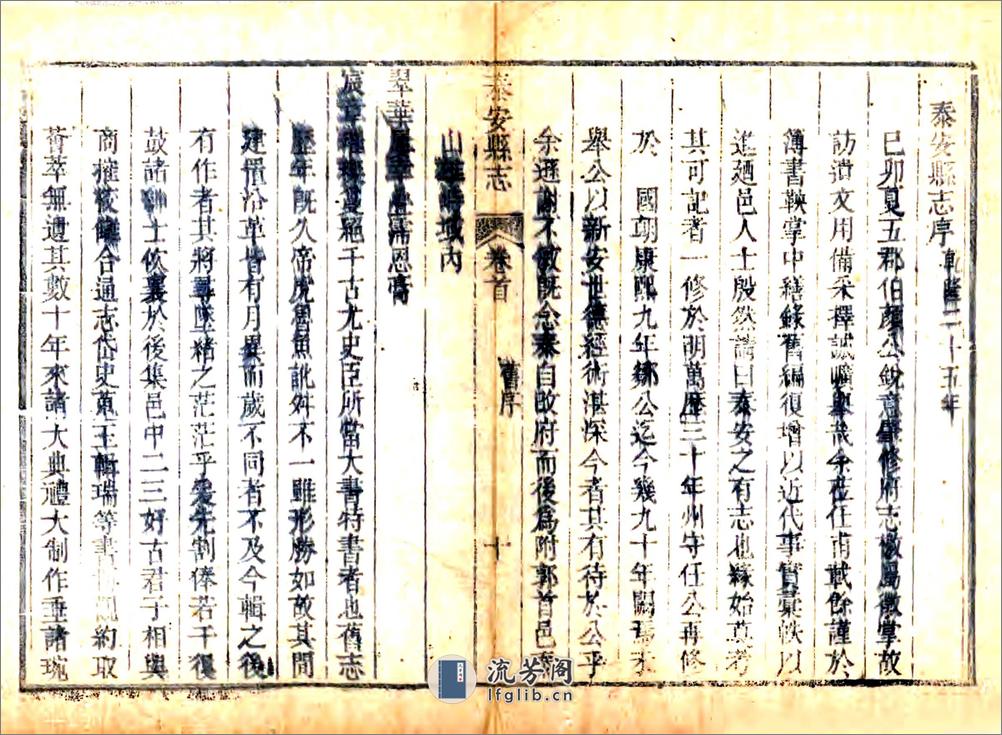 泰安縣志序 乾隆二十五年
己卯夏五郡伯顏公銳意修府志檄屬徵掌故
訪遺文用備采擇誠曠舉哉余蒞任甫載餘謹於
簿書鞅掌中繙錄舊編復增以近代事實彙帙以
進廼邑人士殷然請曰泰安之有志也緣始莫考
其可記者一修於明萬歷三十年州守任公再修
於 國朝康熙九年鄒公迄今幾九十年闕焉未
舉公以新安世德經術湛深今者其有待於公乎
余遜謝不敏既念泰自改府而後為附郭首邑
泰安縣志
卷首
舊序
十
山 域內
翠華 恩膏
宸章 絕千古尤史臣所當大書特書者也舊志
歷年既久帝虎魯魚訛舛不一雖形勝如故其間
建置沿革皆有月異而歲不同者不及今輯之後
有作者其將尋墜緒之茫茫乎爰先割俸若干復
鼓諸紳士佽襄於後集邑中二三好古君子相與
商榷 合通志岱史 輯瑞等書 約取
薈萃無遺其數十年來諸大典禮大制作垂諸琬
流芳閣
lfglib.cn